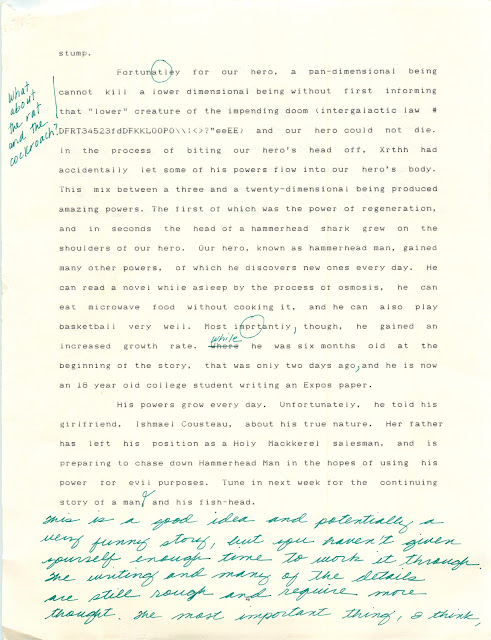 stump.
Fortunatley for our hero, a pan-dimensional being
cannot kill a lower dimensional being without first informing
that "lower" creature of the impending doom (intergalactic law #
DFRT34523fdDFKKLOOPO\\!<>?"eeEE) and our hero could not die.
What
about
the rat
and the
cockroach?
In the process of biting our hero's head off, Xrthh had
accidentally let some of his powers flow into our hero's body.
This mix between a three and a twenty-dimensional being produced
amazing powers. The first of which was the power of regeneration,
and in seconds the head of a hammerhead shark grew on the
shoulders of our hero. Our hero, known as hammerhead man, gained
many other powers, of which he discovers new ones every day. He
can read a novel while asleep by the process of osmosis, he can
eat microwave food without cooking it, and he can also play
basketball very well. Most imprtantly, though, he gained an
while
increased growth rate. Where he was six months old at the
beginning of the story, that was only two days ago, and he is now
an 18 year old college student writing an Expos paper.
His powers grow every day. Unfortunately, he told his
girlfriend, Ishmael Cousteau, about his true nature. Her father
has left his position as a Holy Mackkerel salesman, and is
preparing to chase down Hammerhead Man in the hopes of using his
power for evil purposes. Tune in next week for the continuing
story of a man, and his fish-head.
This is a good idea and potentially a
very funny story, but you haven't given
yourself enough time to work it through.
The writing and many of the details
are still rough and require more
thought. The most important thing, I think,